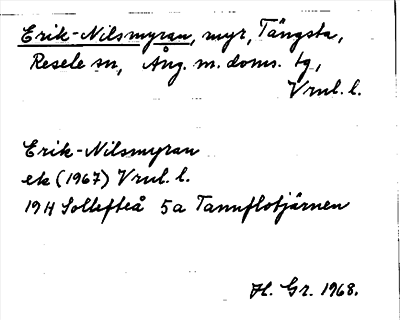 Erik-Nilsmyran, myr, Tängsta,
Resele sn, Ång. m. doms. tg,
Vrnl. l.
Erik-Nilsmyran
ek (1967) Vrnl. l.
19H Sollefteå 5a Tannflotjärnen
H. Gr. 1968.